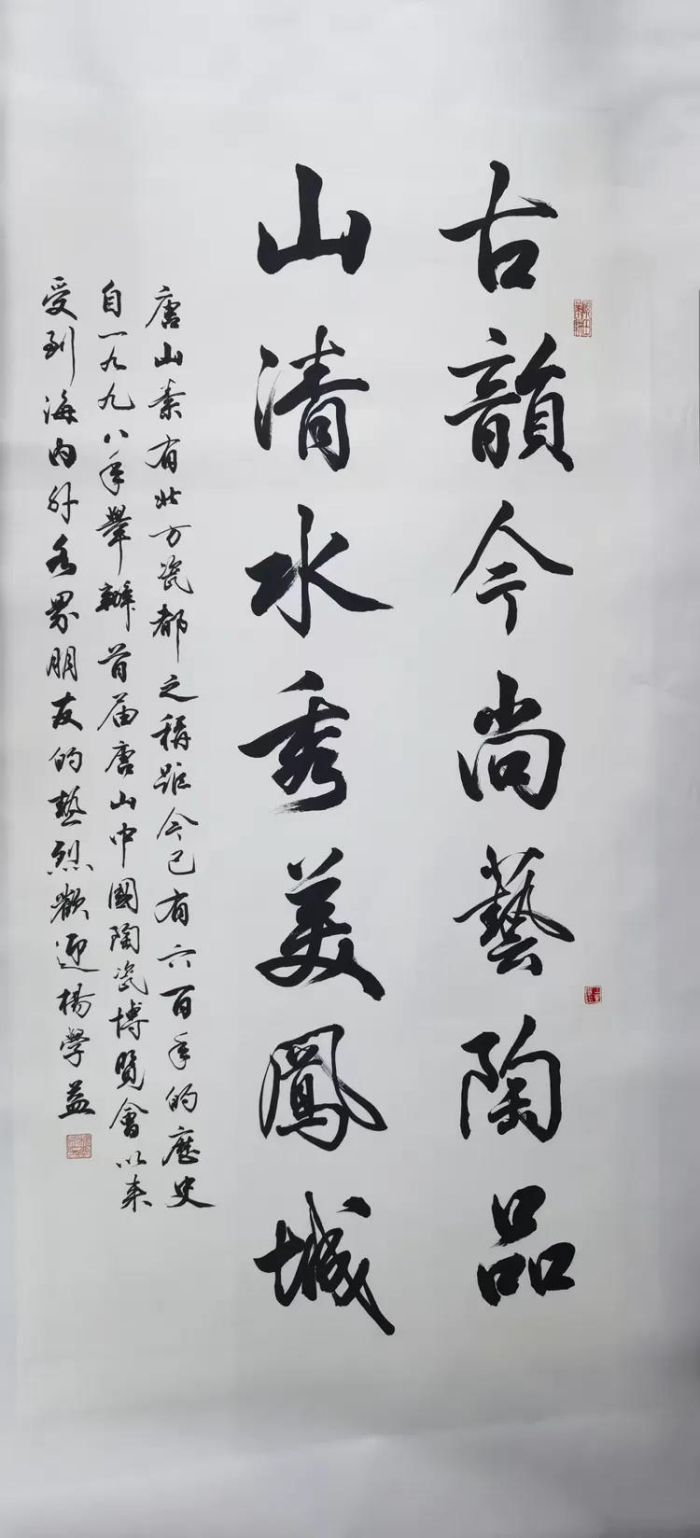 古韻今尚藝陶品
山清水秀美鳳城
唐山素有北方瓷都之稱距今已有六百年的歷史
自一九九八年舉辦首届唐山中國陶瓷博覽會以来
受到海内外各界朋友的熱烈歡迎楊學益